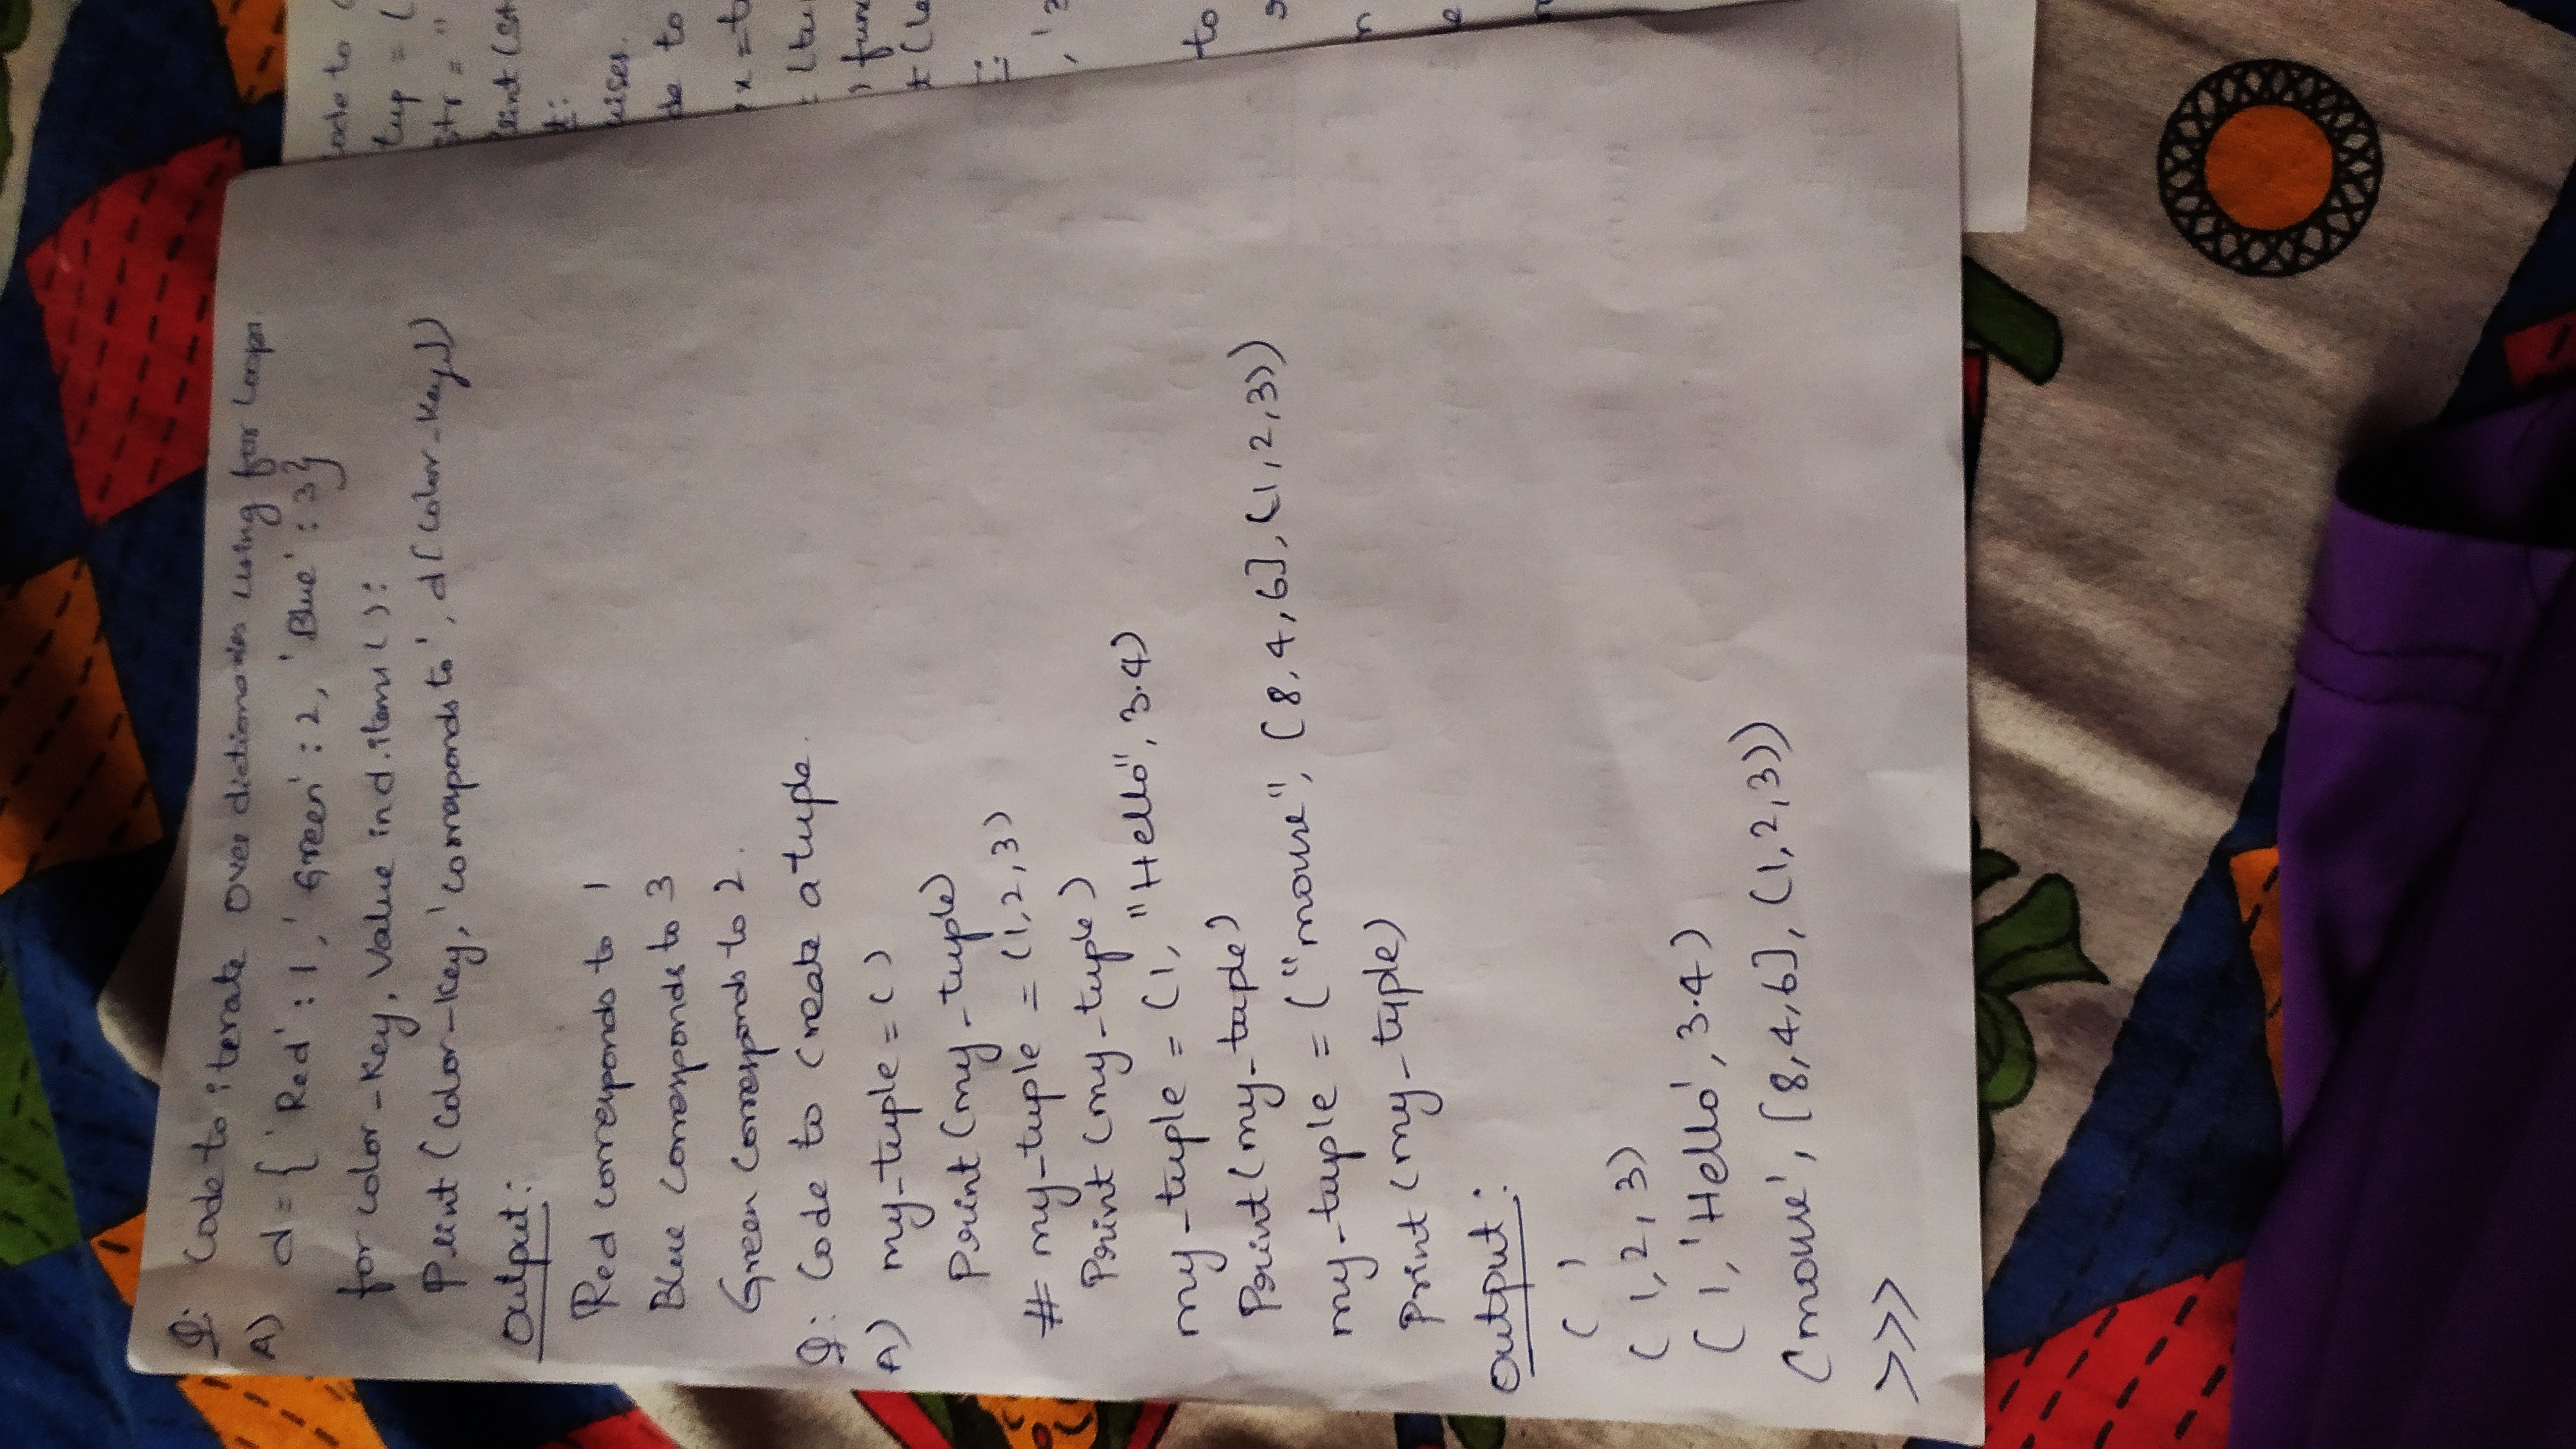 Q: Code to iterate Over dictionaries using for loops.
A) d = { 'Red' : 1, 'Green' : 2, 'Blue' : 3}
for color-Key, Value in d.items():
Print (Color-Key, 'corresponds to', d[Color-Key])
Output:
Red corresponds to 1
Blue corresponds to 3
Green Corresponds to 2.
Q: Code to Create a tuple.
A) my-tuple = ( )
Print (my-tuple)
# my-tuple = (1,2,3)
Print (my-tuple)
my-tuple = (1, "Hello", 3.4)
Print (my-tuple)
my-tuple = ("mouse", [8,4,6], (1,2,3))
Print (my-tuple)
Output:
( )
( 1,2,3)
( 1, 'Hello', 3.4)
(mouse', [8,4,6], (1,2,3))
>>>
ode to
tup = (
str = "
Print (st
t:
uises.
de to
x = t
(tu
) func
t (le
, '3
to
n
e